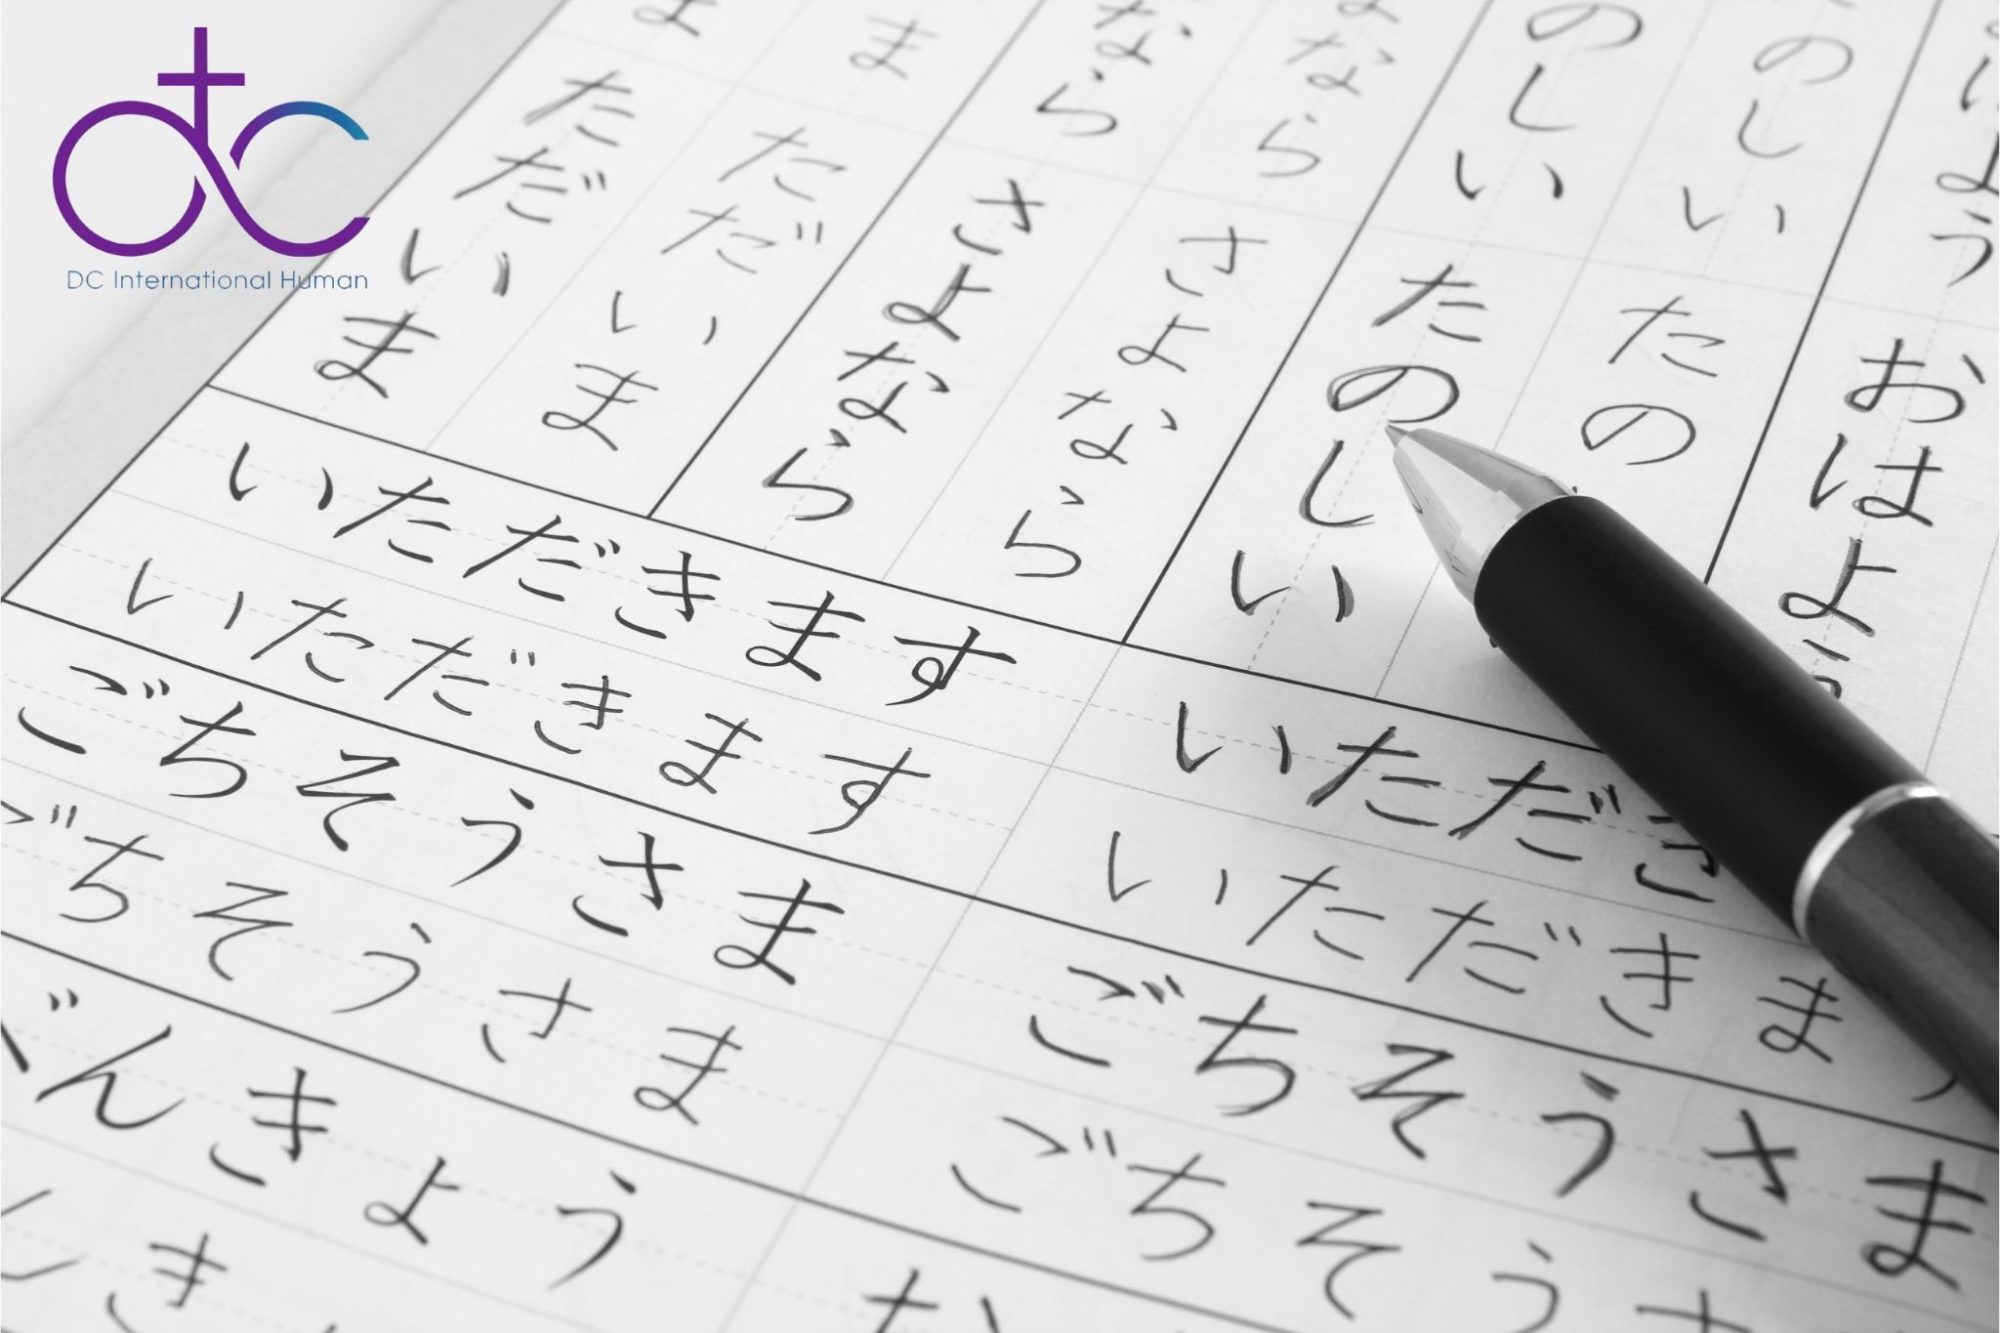 DC International Human
おはよう
おはよ
のしい
たのしい
のしい
たの
なら
さよなら
なら
さよなら
ま
ただいま
ま
ただいま
いただきます
いただきます
ごちそうさま
ごちそうさま
べんきょう
き
いただき
いただきま
ごちそうさま
ごちそうさ